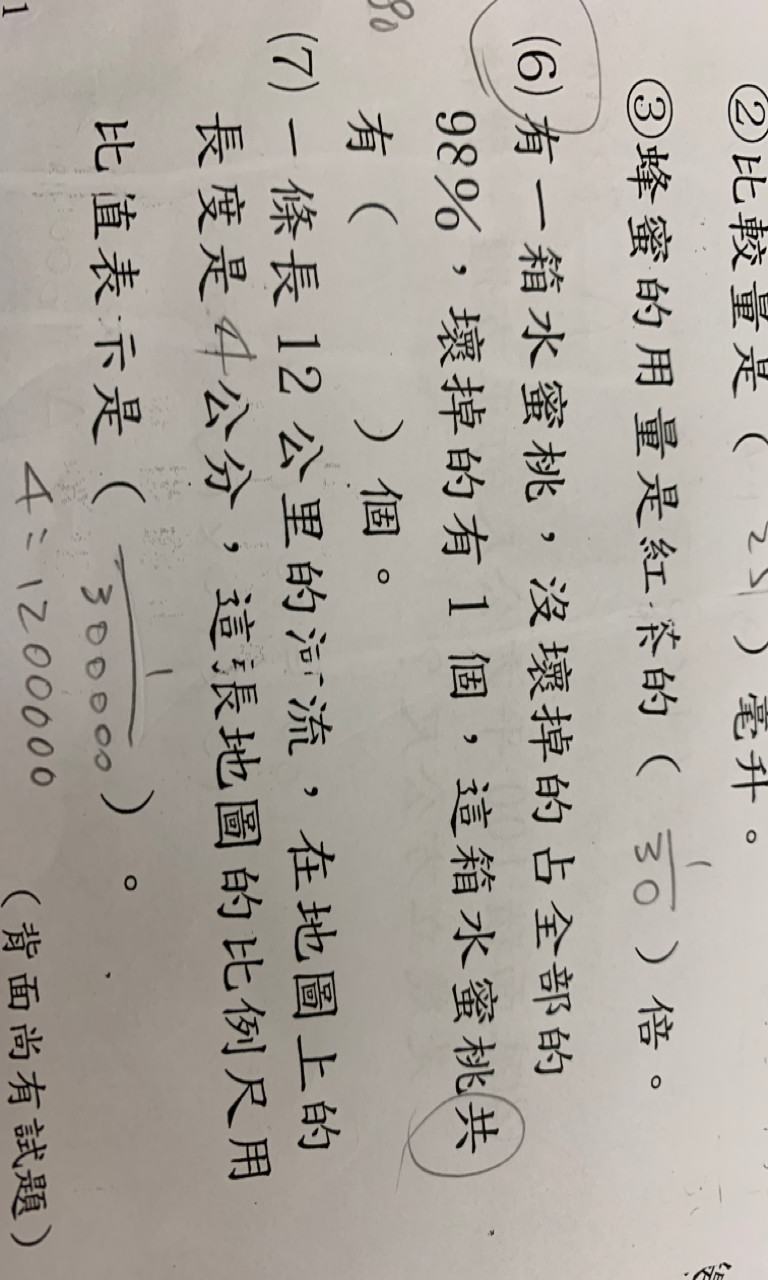 ②比較量是( 25 )毫升。
③蜂蜜的用量是紅茶的( 1/30 )倍。
(6)有一箱水蜜桃，沒壞掉的占全部的
98%，壞掉的有1個，這箱水蜜桃共
有( )個。
(7)一條長12公里的河流，在地圖上的
長度是4公分，這張地圖的比例尺用
比值表示是( 1/3000000 )。
4:1200000
(背面尚有試題)
1